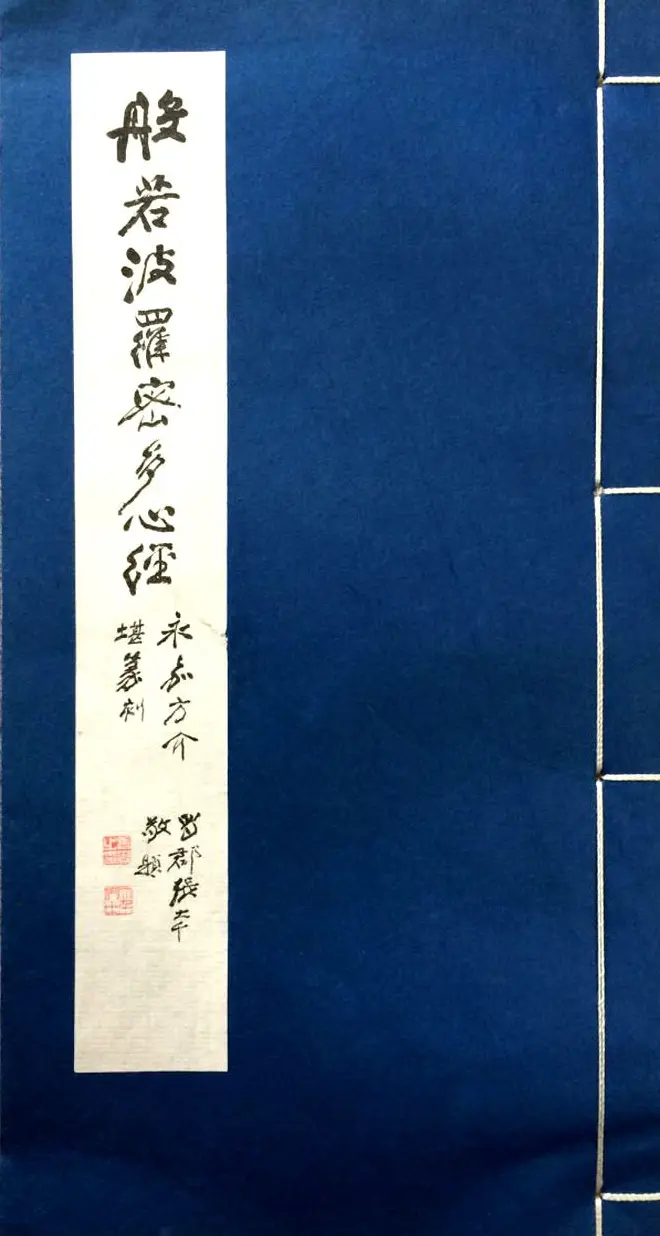 般若波羅密多心經
永嘉方介
堪篆刻
蜀郡張大千
敬題